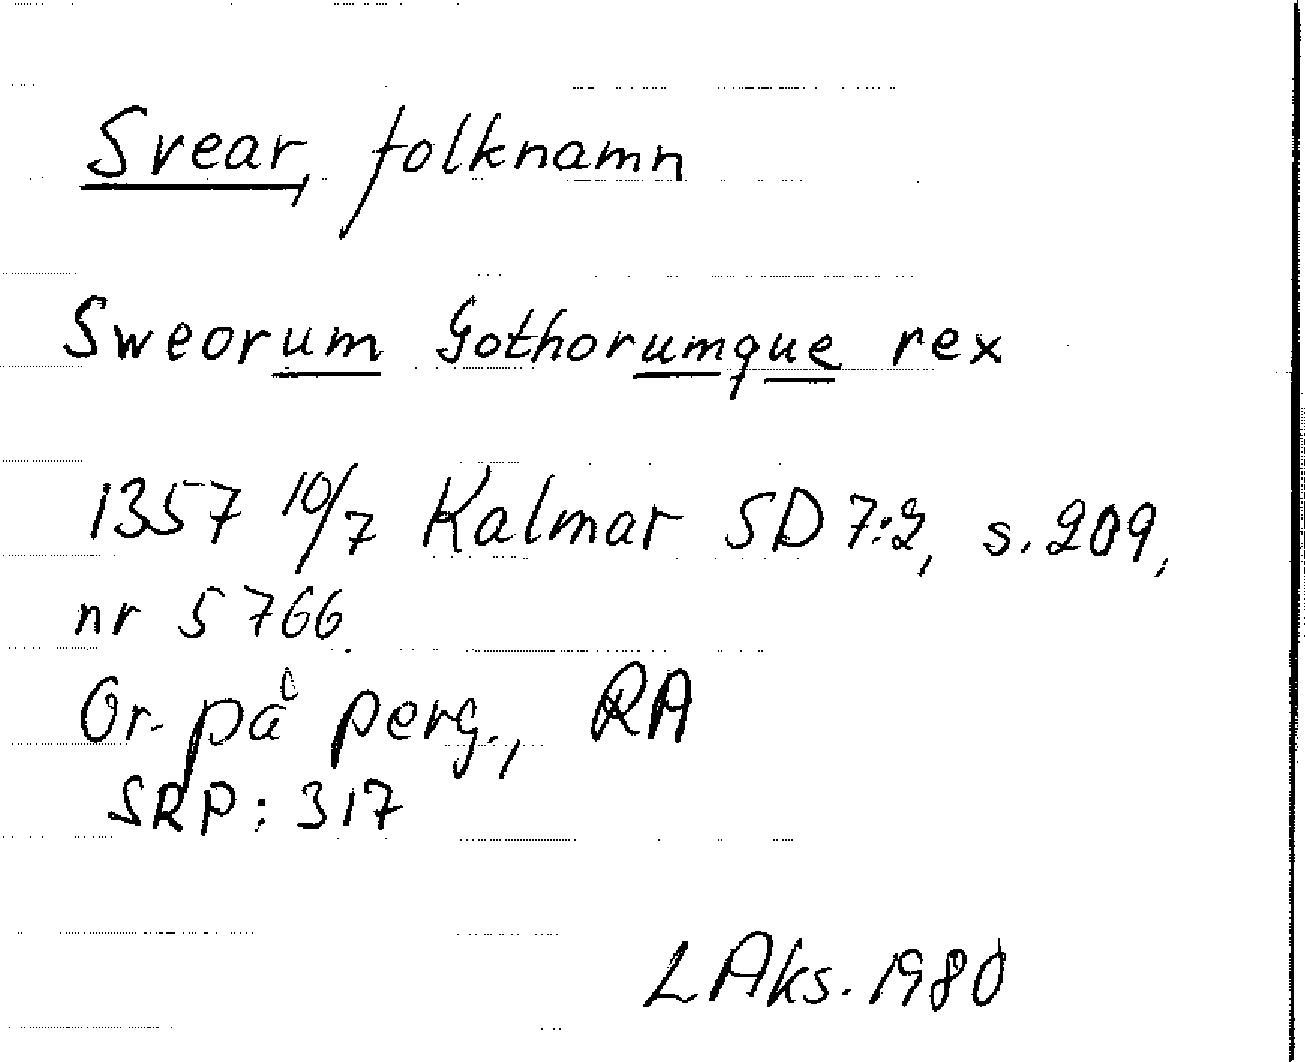 Svear, folknamn
Sweorum Gothorumque rex
1357 10/7 Kalmar SD 7:2, s. 209,
nr 5766.
Or. på perg., RA
SRP: 317
LAks. 1980